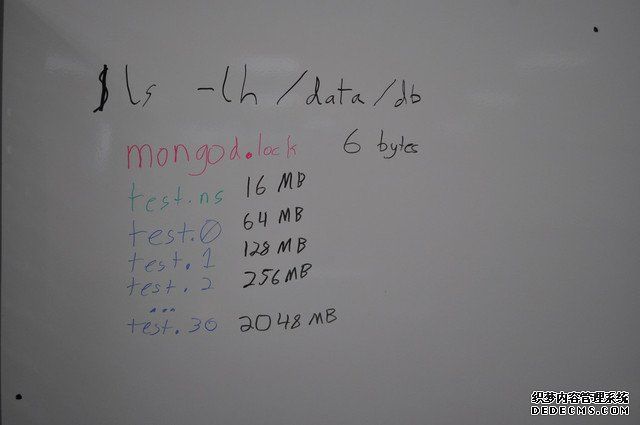 $ls -lh /data/db
mongod.lock 6 bytes
test.ns 16 MB
test.0 64 MB
test.1 128 MB
test.2 256 MB
...
test.30 2048 MB
织梦内容管理系统
DEDECMS.COM